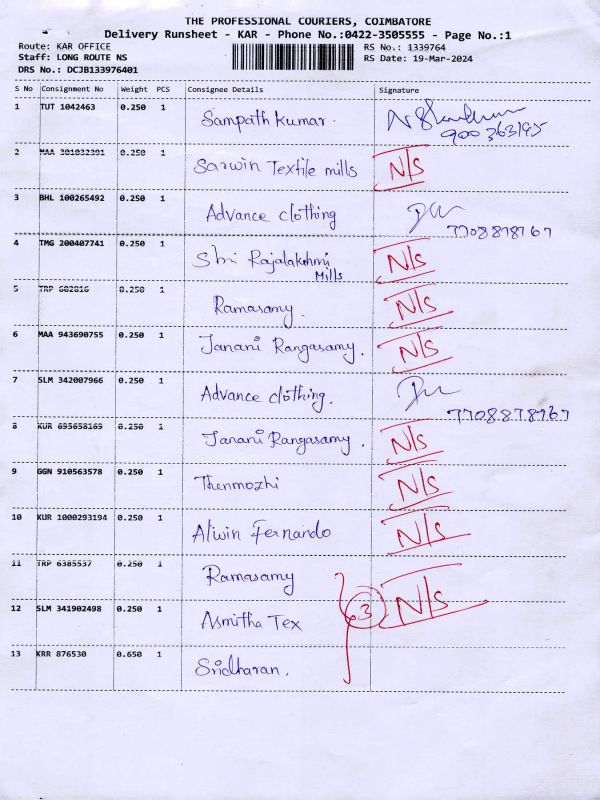 THE PROFESSIONAL COURIERS, COIMBATORE
Delivery Runsheet - KAR - Phone No.:0422-3505555 - Page No.:1
Route: KAR OFFICE RS No.: 1339764
Staff: LONG ROUTE NS RS Date: 19-Mar-2024
DRS No.: DCJB133976401
S No Consignment No Weight PCS Consignee Details Signature
1 TUT 1042463 0.250 1 Sampath Kumar.
2 MAA 301032391 0.250 1 Sarwin Textile mills N/S
3 BHL 100265492 0.250 1 Advance clothing
4 TMG 200407741 0.250 1 Shri Rajalakshmi Mills N/S
5 TRP 682816 0.250 1 Ramasamy. N/S
6 MAA 943690755 0.250 1 Janani Rangasamy. N/S
7 SLM 342007966 0.250 1 Advance clothing.
7708878767
8 KUR 695658169 0.250 1 Janani Rangasamy. N/S
9 GGN 910563578 0.250 1 Thenmozhi N/S
10 KUR 1000293194 0.250 1 Alwin Fernando N/S
11 TRP 6385537 0.250 1 Ramasamy
12 SLM 341902498 0.250 1 Asmitha Tex 3 N/S
13 KRR 876530 0.650 1 Sridharan.